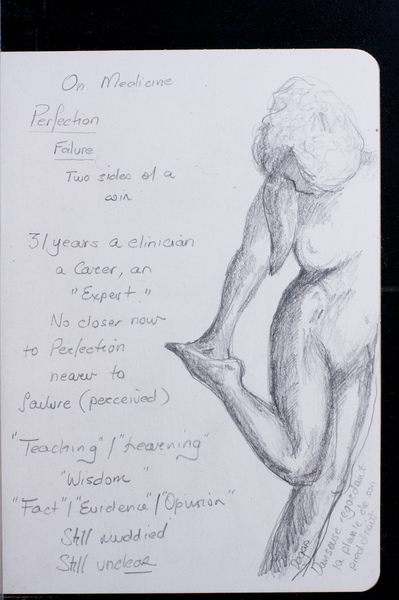 On Medicine
Perfection
Failure
Two sides of a
coin
31 years a clinician
a Career, an
"Expert."
No closer now
to Perfection
nearer to
failure (perceived)
"Teaching" / "Learning"
"Wisdom"
"Fact" / "Evidence" / "Opinion"
Still muddied
Still unclear
Degas
Danseuse regardant
la plante de son
pied droit